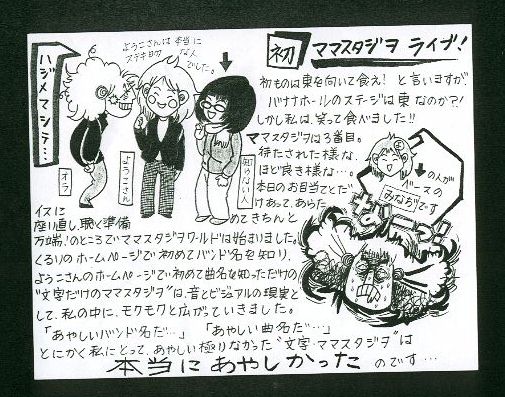 初 ママスタジヲ ライブ!
ハジメマシテ…
ようこさんは本当に
ステキな人
でした。
オラ
ようこさん
知らない人
初ものは東を向いて食え! と言いますが、
バナナホールのステージは東なのか?!
しかし私は、笑って食べました!!
ママスタジヲは3番目。
待たされた様な、
ほど良き様な…。
本日のお目当てとだ
けあって、あらた
めてきちんと
イスに
座り直し、聴く準備
万端!のところでママスタジヲワールドは始まりました。
くるりのホームページで初めてバンド名を知り、
ようこさんのホームページで初めて曲名を知っただけの
"文字だけのママスタジヲ"は、音とビジュアルの現実と
して、私の中に、モクモクと広がっていきました。
「あやしいバンド名だ…」 「あやしい曲名だ…」
とにかく私にとって、あやしい極りなかった"文字・ママスタジヲ"は
本当にあやしかった のです…
の人が
ベースの
みなぢです